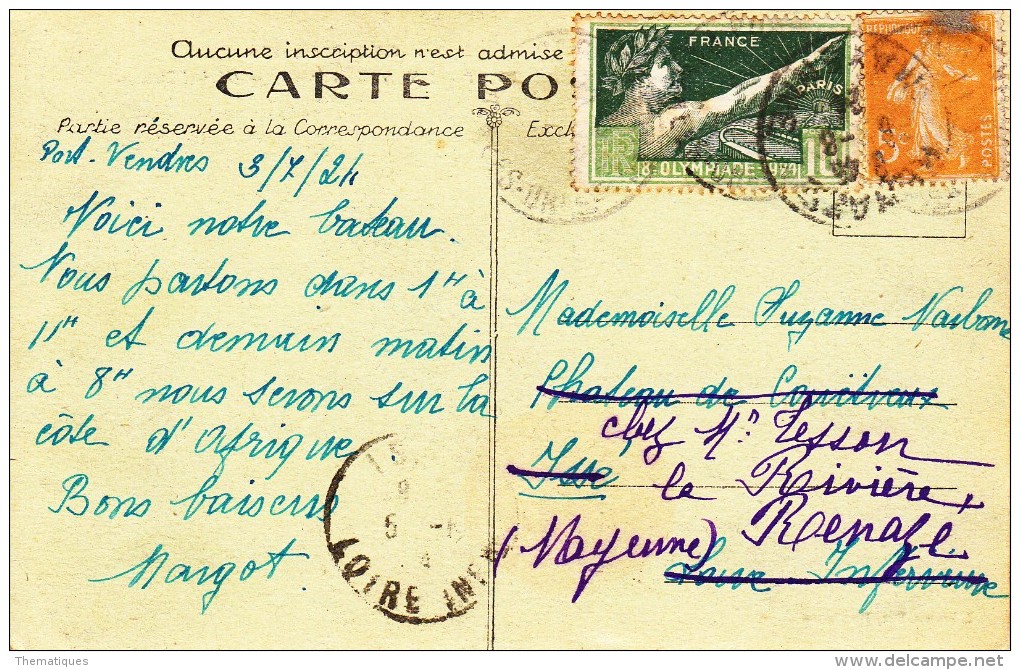 Aucune inscription n'est admise
CARTE PO
Partie réservée à la Correspondance
Port-Vendres 3/7/24
Voici notre bateau.
Nous partons dans 1H à
11H et demain matin
à 8H nous serons sur la
côte d'Afrique
Bons baisers
Margot.
FRANCE
PARIS
8e OLYMPIADE 1924
10
RF
5c
POSTES
Mademoiselle Suzanne Narbonne
Chateau de
chez Mr Tesson
Issé
la Rivière
Renazé
(Mayenne)
Loire Inférieure
LOIRE INF
Thematiques
www.delcampe.net